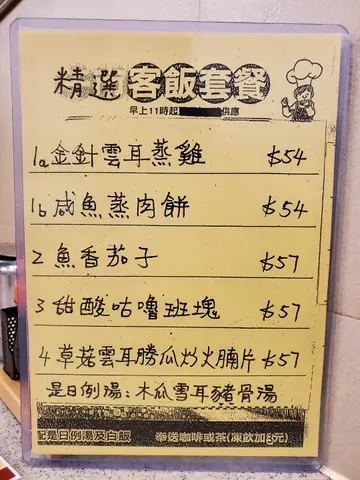 精選客飯套餐
早上11時起 供應
1a金針雲耳蒸雞 $54
1b咸魚蒸肉餅 $54
2 魚香茄子 $57
3 甜酸咕嚕班塊 $57
4 草菇雲耳勝瓜炒火腩片 $57
是日例湯:木瓜雪耳豬骨湯
配是日例湯及白飯 奉送咖啡或茶(凍飲加 元)